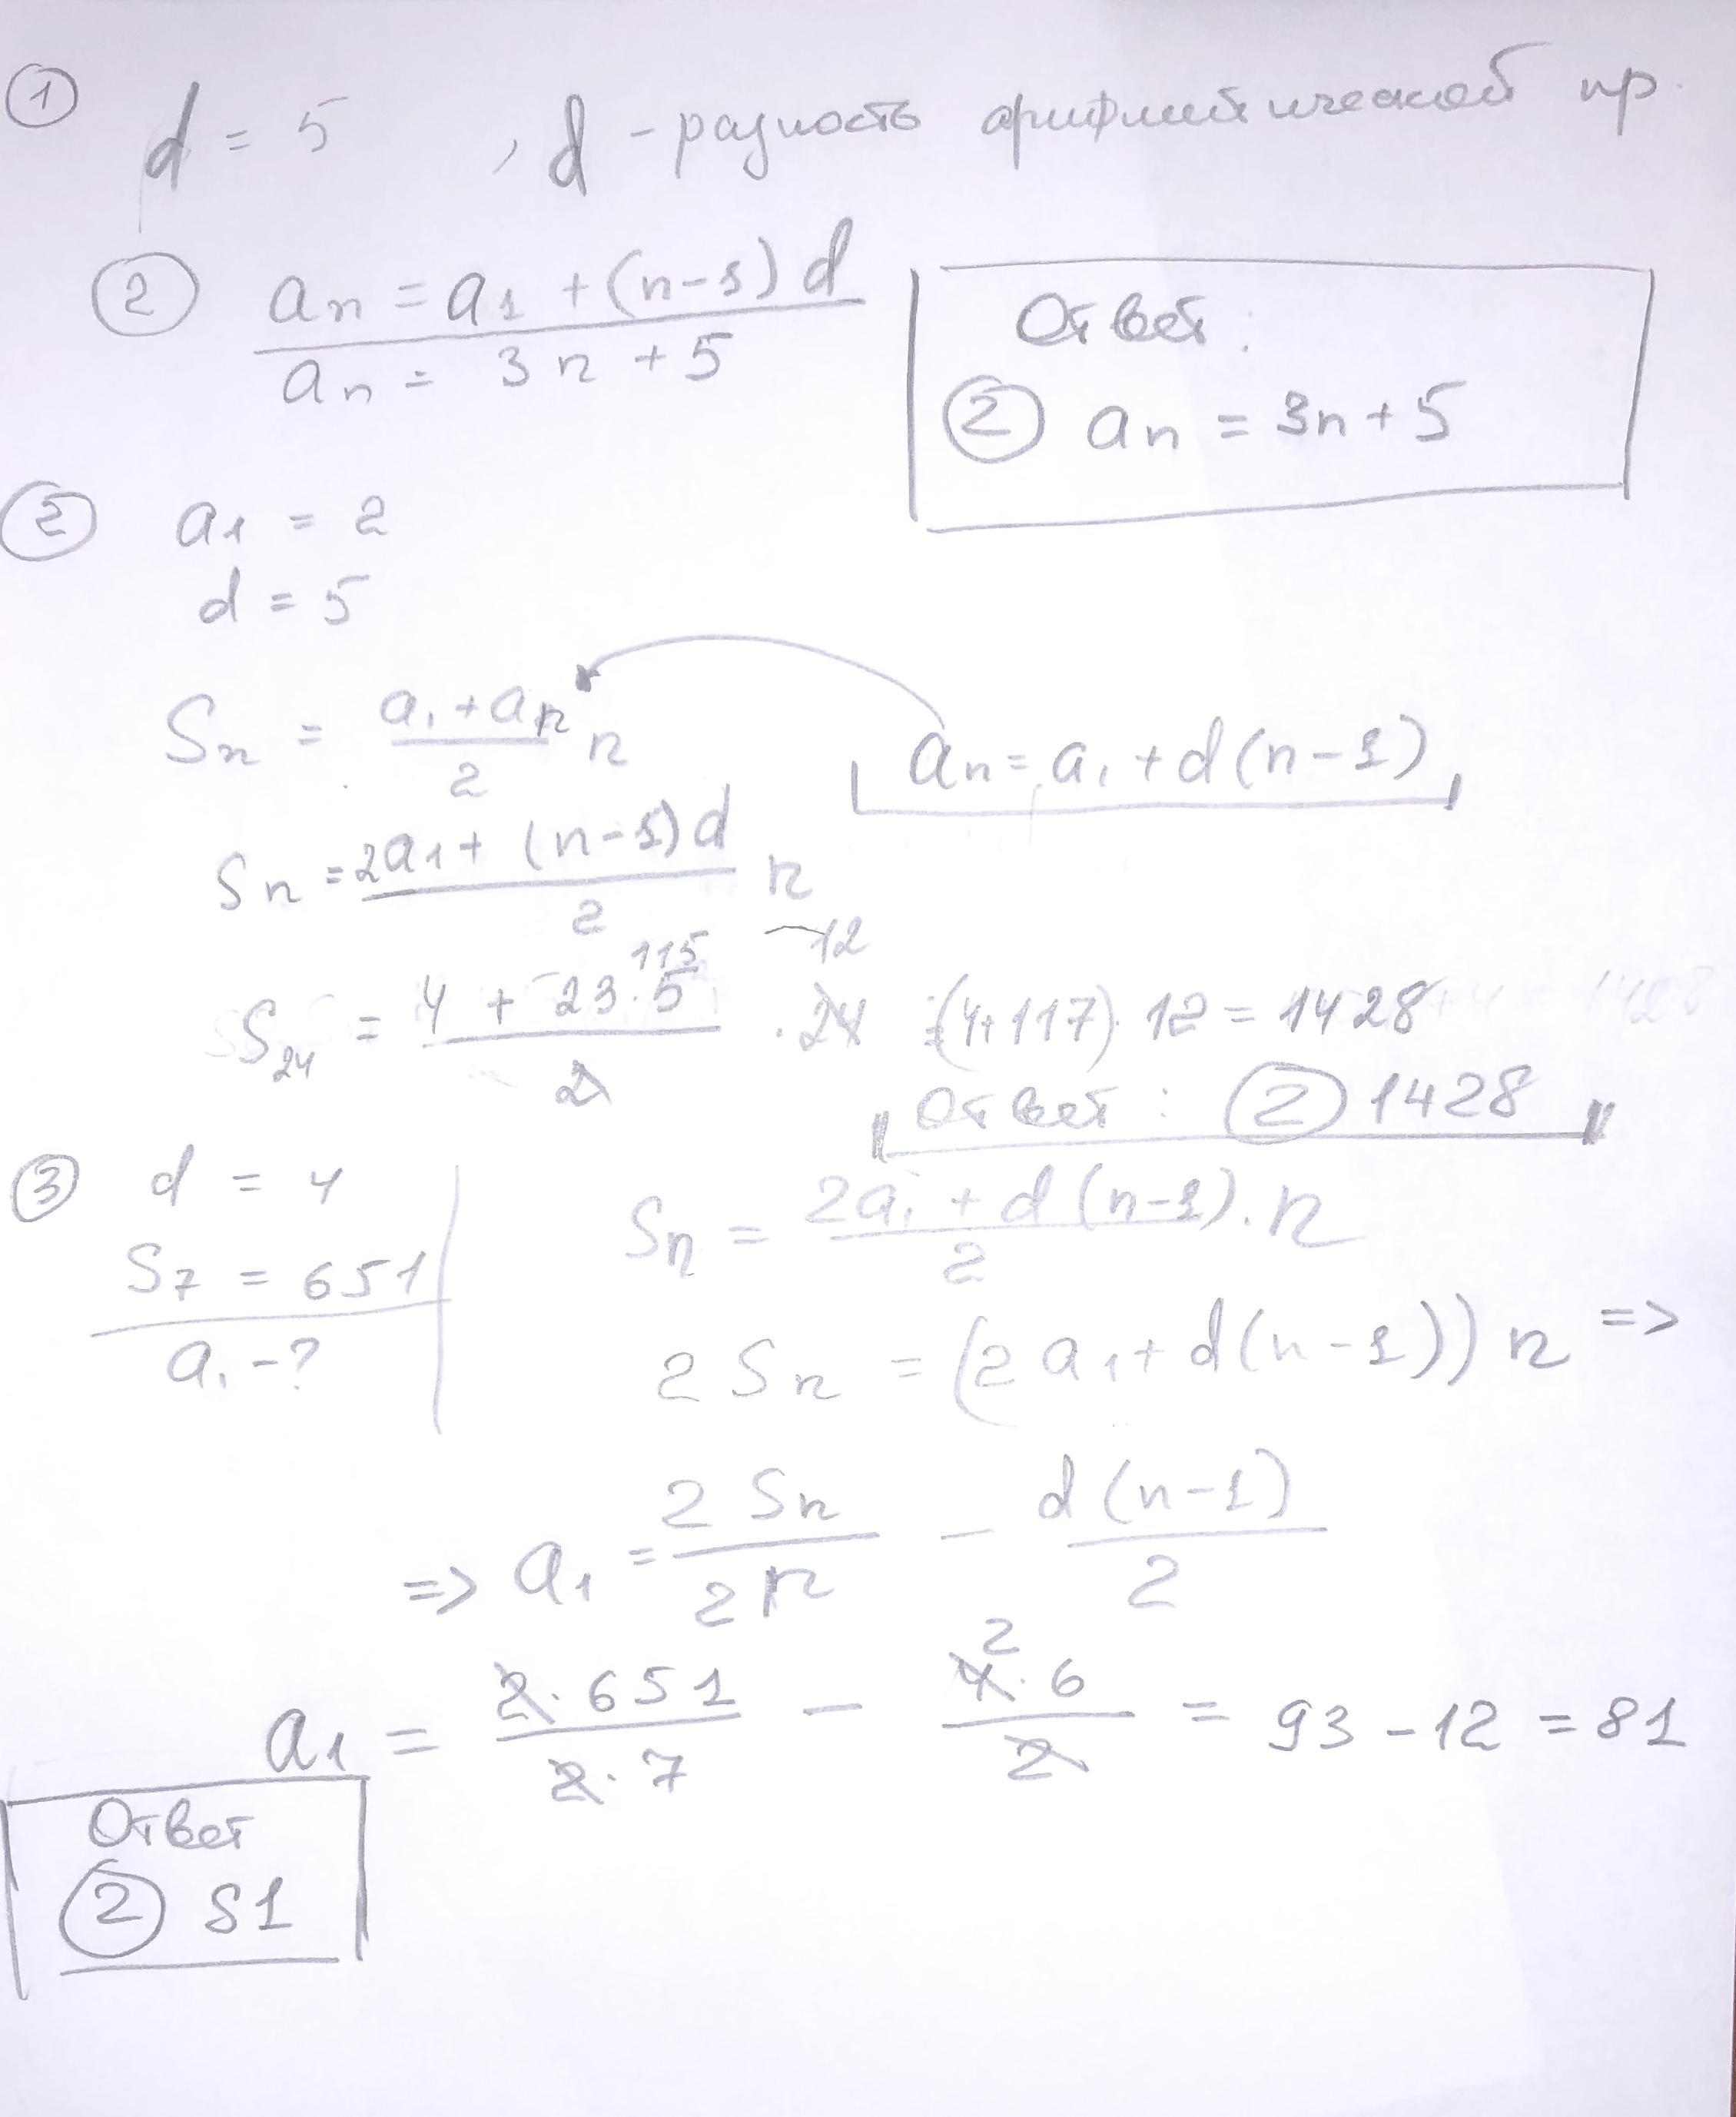 ① d = 5 , d - разность арифметической пр.
② an = a1 + (n-1) d
an = 3n + 5
Ответ:
② an = 3n + 5
② a1 = 2
d = 5
Sn = (a1 + an)/2 n
an = a1 + d(n-1)
Sn = (2a1 + (n-1)d)/2 n
115 12
S24 = (4 + 23·5)/2 · 24 = (4+117)·12 = 1428
Ответ: ② 1428
③ d = 4
S7 = 651
a1 - ?
Sn = (2a1 + d(n-1))/2 · n
2Sn = (2a1 + d(n-1)) n =>
=> a1 = 2Sn/2n - d(n-1)/2
2
a1 = 2·651/2·7 - 4·6/2 = 93 - 12 = 81
Ответ
② 81